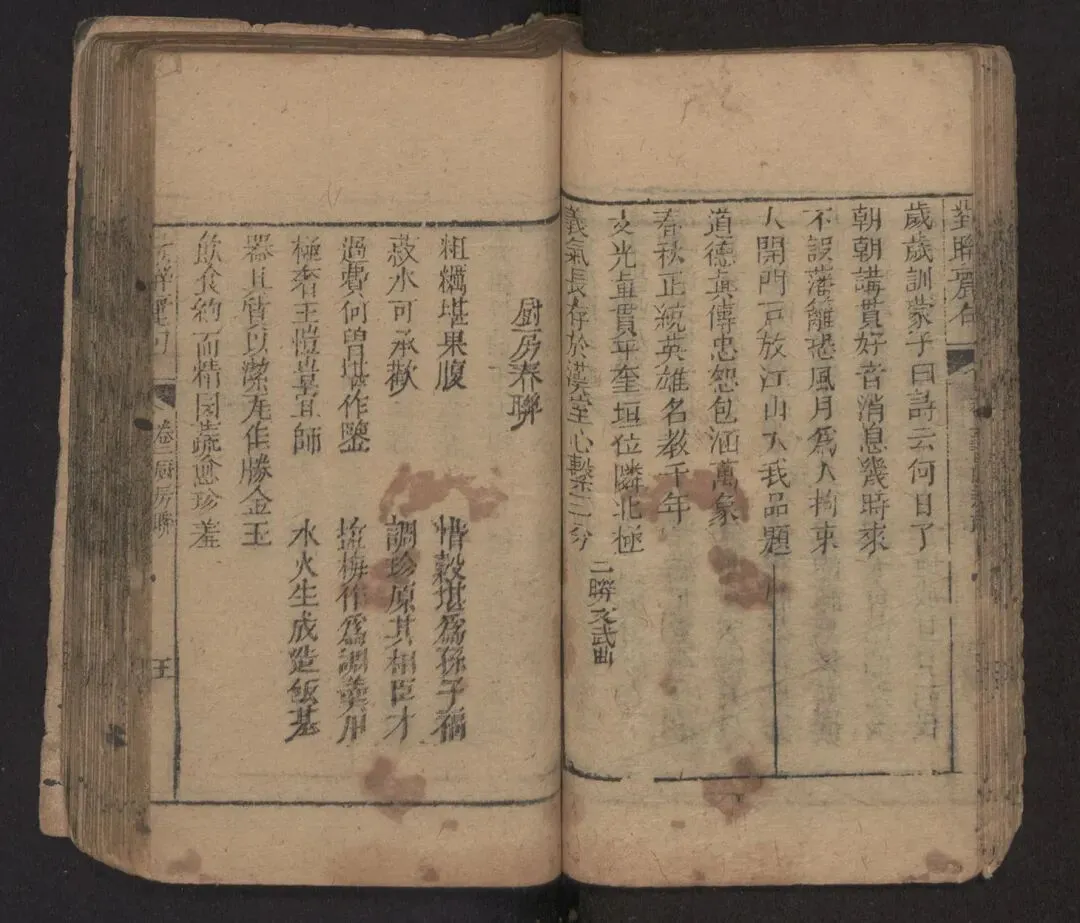 歲歲訓蒙子曰詩云何日了
朝朝講貫好音消息幾時來
不誤藩籬恐風月為人拘束
大開門戶放江山入我品題
道德真傳忠恕包涵萬象
春秋正統英雄名教千年
文光直貫年奎垣位隣北極
義氣長存於漢室心繫三分
二聯文武曲
厨房春聯
粗糲堪果腹
惜穀堪為孫子福
菽水可承歡
調珍原其相臣才
過費何曾堪作鑒
塩梅作為調羹用
極奢王愷豈且師
水火生成造飯基
器且質以潔瓦缶勝金玉
飲食約而精園蔬愈珍羞
卷二厨房聯